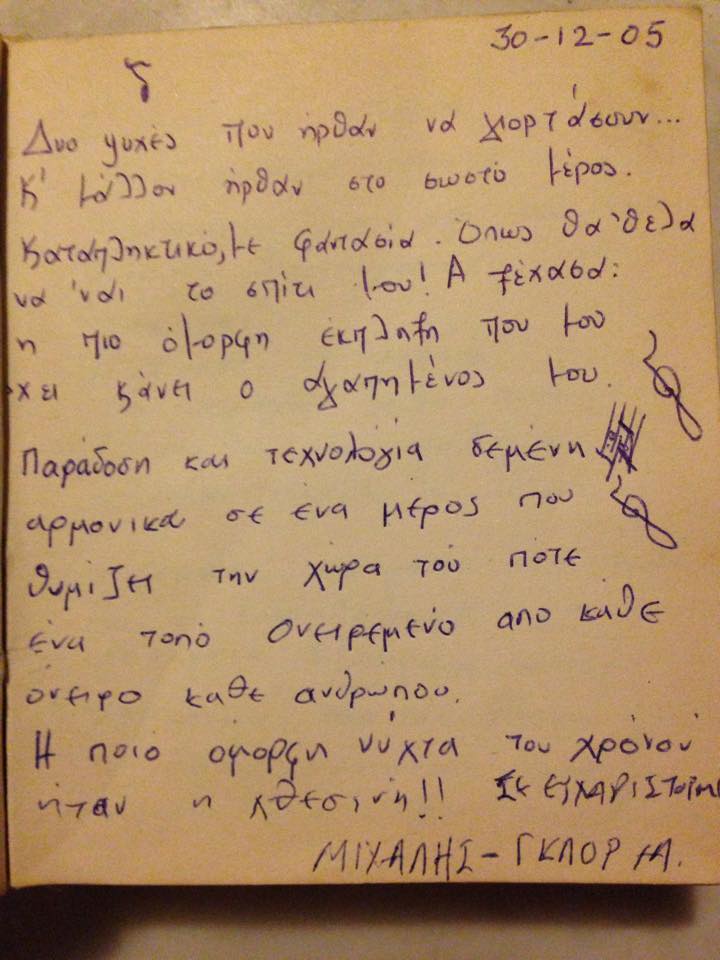 30-12-05
Δυο ψυχές που ήρθαν να γιορτάσουν...
Κ' μάλλον ήρθαν στο σωστό μέρος.
Καταπληκτικό, με φαντασία. Όπως θα 'θελα
να 'ναι το σπίτι μου! Α ξέχασα:
η πιο όμορφη έκπληξη που μου
'χει κάνει ο αγαπημένος μου.
Παράδοση και τεχνολόγια δεμένη
αρμονικά σε ένα μέρος που
θυμίζει την χώρα του ποτέ
ένα τοπό ονειρεμένο απο κάθε
όνειρο καθε ανθρώπου.
Η ποιό όμορφη νύχτα του χρόνου
ήταν η χθεσινή!! ΣΕ ΕΥΧΑΡΙΣΤΟΥΜΕ
ΜΙΧΑΛΗΣ - ΓΚΛΟΡΙΑ.